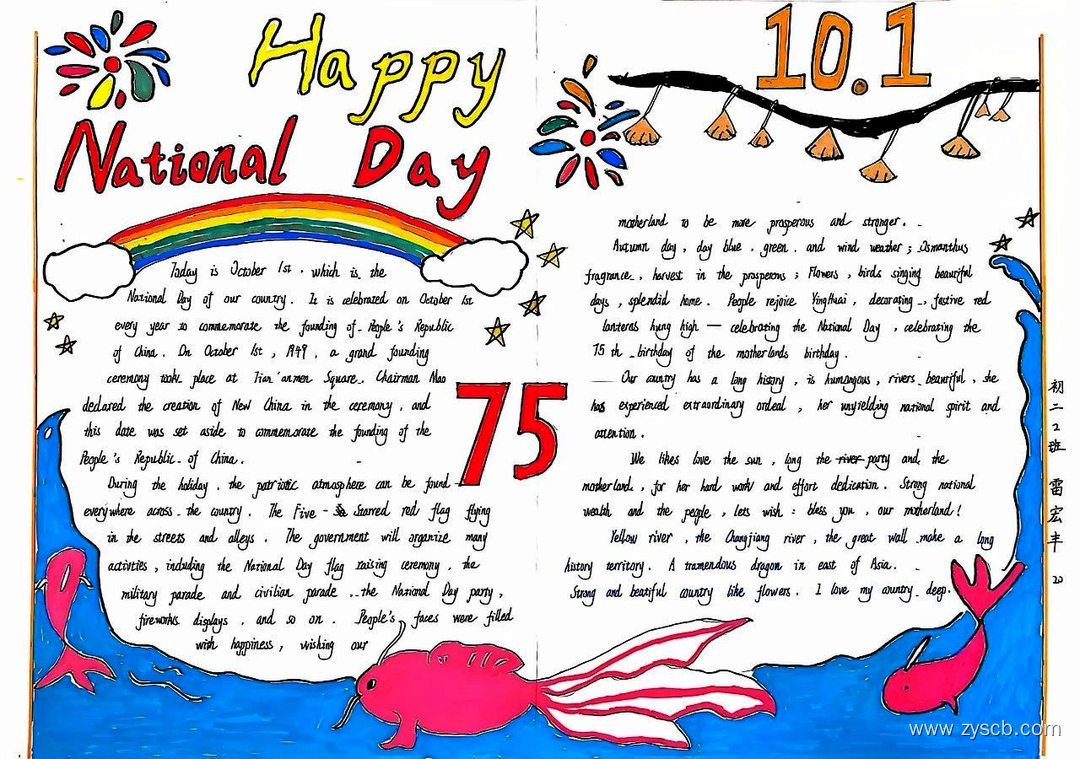 Happy
National Day
10.1
Today is October 1st. which is the
National Day of our country. It is celebrated on October 1st
every year to commemorate the founding of People's Republic
of China. On October 1st, 1949, a grand founding
ceremony took place at Tian'anmen Square. Chairman Mao
declared the creation of New China in the ceremony, and
this date was set aside to commemorate the founding of the
People's Republic of China.
During the holiday, the patriotic atmosphere can be found
everywhere across the country. The Five - Starred red flag flying
in the streets and alleys. The government will organize many
activities, including the National Day flag raising ceremony, the
military parade and civilian parade, the National Day party,
fireworks displays, and so on. People's faces were filled
with happiness, wishing our
75
motherland to be more prosperous and stronger.
Autumn day, day blue. green. and wind weather; Osmanthus
fragrance, harvest in the prosperous; Flowers, birds singing beautiful
days, splendid home. People rejoice YingHuai, decorating, festive red
lanterns hung high — celebrating the National Day, celebrating the
75 th birthday of the motherlands birthday.
Our country has a long history, is humongous, rivers beautiful, she
has experienced extraordinary ordeal, her unyielding national spirit and
attention.
We likes love the sun, long the river party and, the
motherland, for her hard work and effort dedication. Strong national
wealth and the people, lets wish: bless you, our motherland!
Yellow river, the Changjiang river, the great wall make a long
history territory. A tramendous dragon in east of Asia.
Strong and beatiful country like flowers. I love my country deep.
初二2班 雷宏丰 20
www.zyscb.com